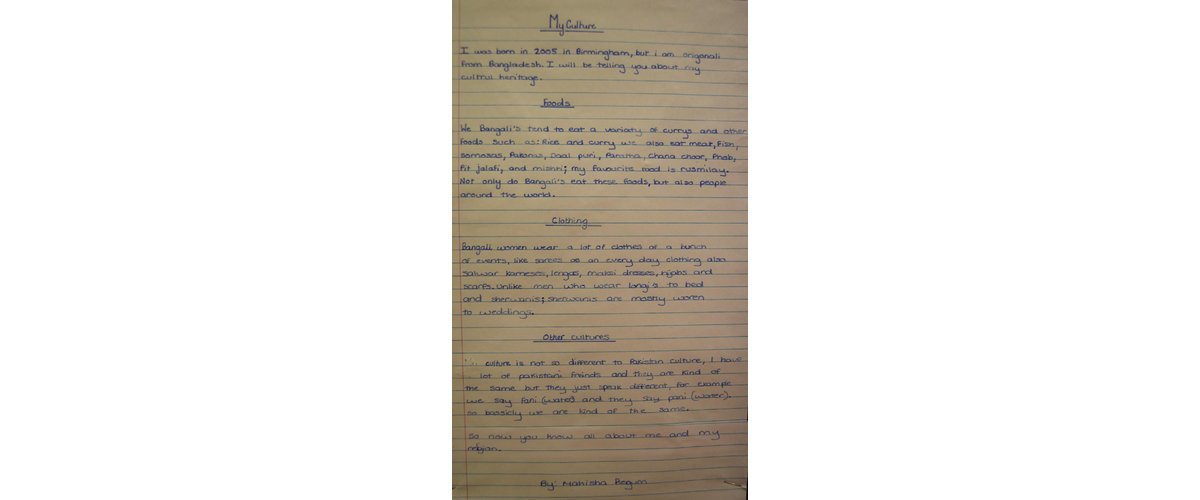 My Culture
I was born in 2005 in Birmingham, but i am origonali
from Bangladesh. I will be telling you about my
cultrul heritage.
Foods
We Bangali's tend to eat a variaty of currys and other
foods such as: Rice and curry we also eat meat, fish,
somosas, Pakoras, Daal puri, Paratha, Chana choor,
Pit jalafi, and mishti; my favourite food is rusmilay.
Not only do Bangali's eat these foods, but also people
around the world.
Clothing
Bangali women wear a lot of clothes of a bunch
of events, like sarees as an every day clothing also
salwar kameses, lengas, maksi dresses, hijabs and
scarfs. Unlike men who wear longi's to bed
and sherwanis; sherwanis are mostly woren
to weddings.
Other cultures
culture is not so different to Pakistan culture, I have
lot of pakistani freinds and they are kind of
the same but they just speak different, for example
we say fani (water) and they say pani (water).
so bassicly we are kind of the same.
So now you know all about me and my
religion.
By: Mahisha Begum